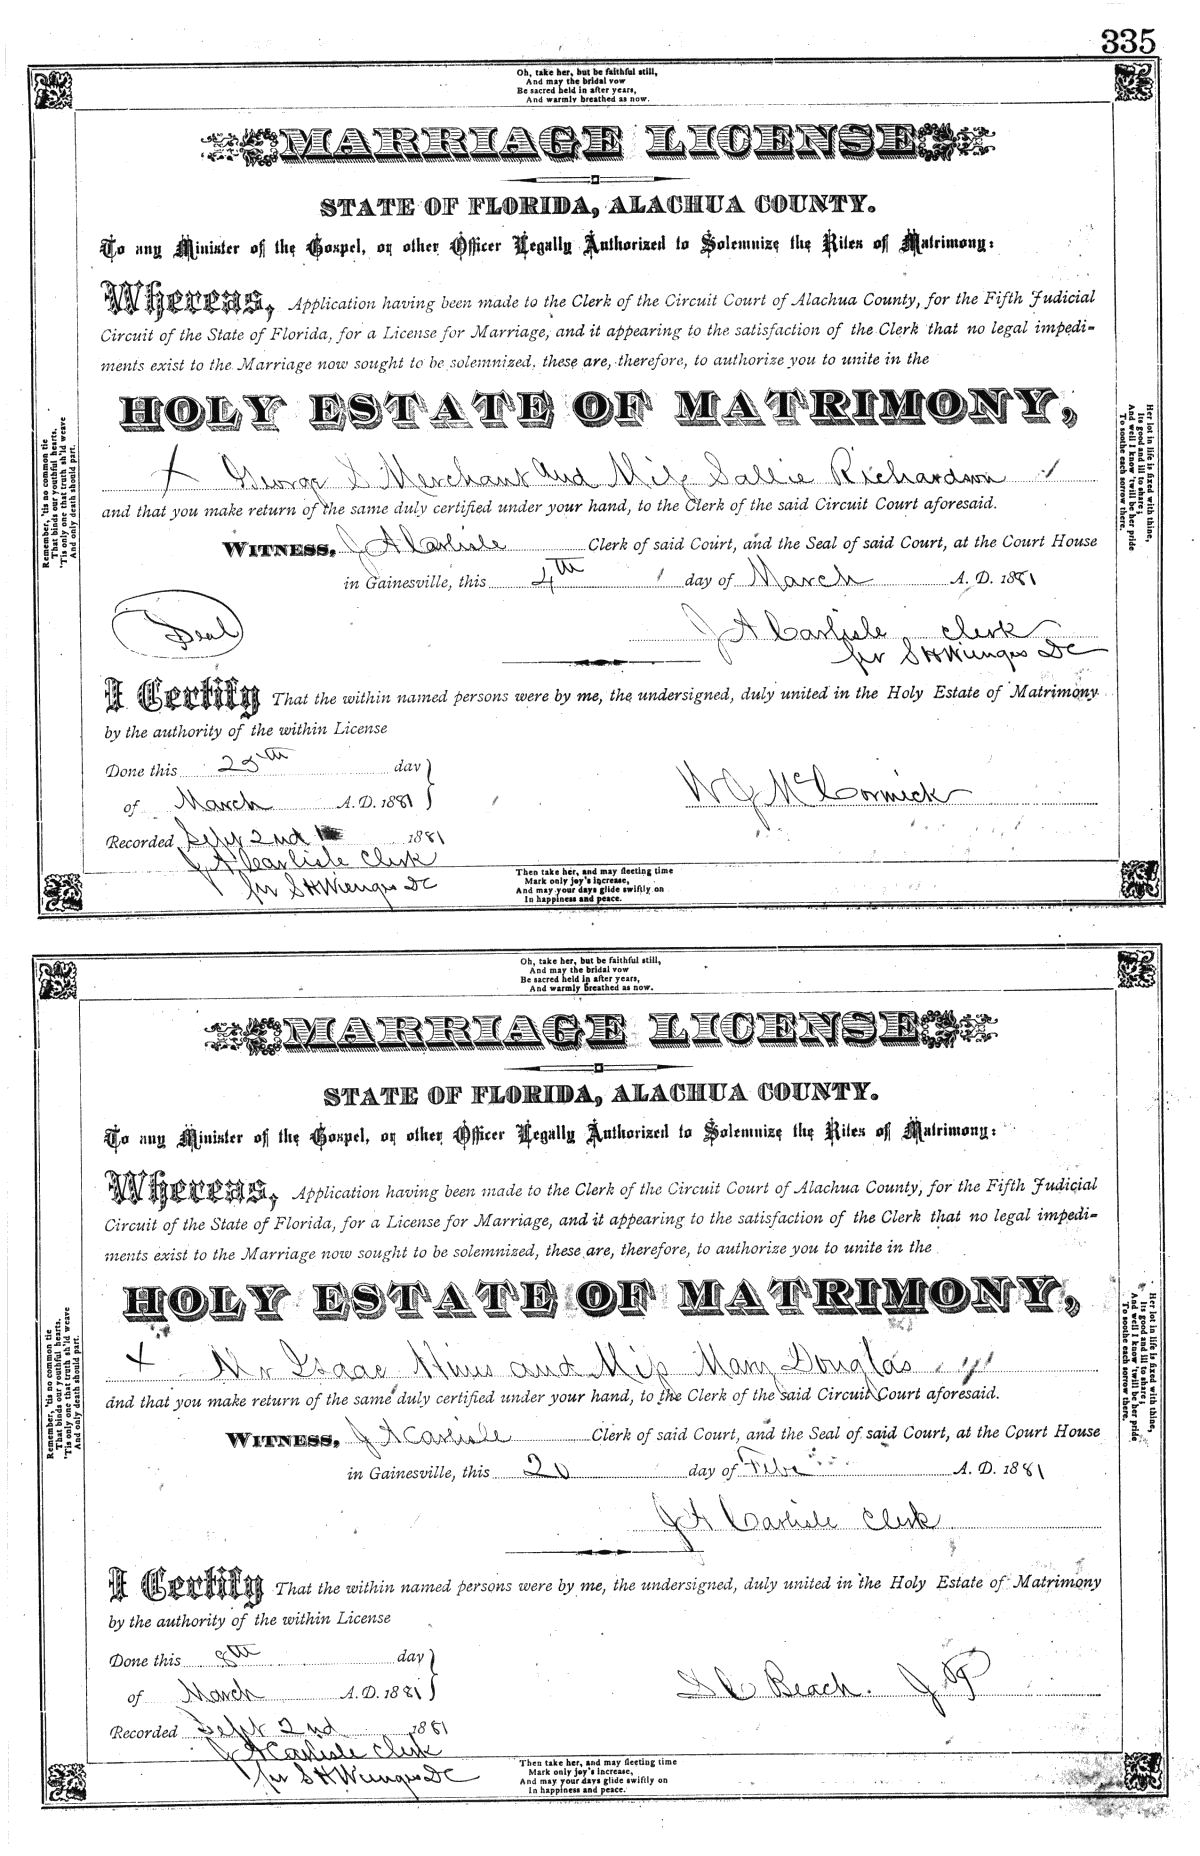 335
Oh, take her, but be faithful still,
And may the bridal vow
Be sacred held in after years,
And warmly breathed as now.
MARRIAGE LICENSE
STATE OF FLORIDA, ALACHUA COUNTY.
To any Minister of the Gospel, or other Officer Legally Authorized to Solemnize the Rites of Matrimony:
Whereas, Application having been made to the Clerk of the Circuit Court of Alachua County, for the Fifth Judicial
Circuit of the State of Florida, for a License for Marriage, and it appearing to the satisfaction of the Clerk that no legal impedi-
ments exist to the Marriage now sought to be solemnized, these are, therefore, to authorize you to unite in the
HOLY ESTATE OF MATRIMONY,
X George S Merchant and Miss Sallie Richardson
and that you make return of the same duly certified under your hand, to the Clerk of the said Circuit Court aforesaid.
WITNESS, J A Carlisle Clerk of said Court, and the Seal of said Court, at the Court House
in Gainesville, this 4th day of March A. D. 1881
Seal
J A Carlisle Clerk
per S H Wienges DC
I Certify That the within named persons were by me, the undersigned, duly united in the Holy Estate of Matrimony
by the authority of the within License
Done this 25th day
of March A. D. 1881
W J McCormick
Recorded Sept 2nd 1881
J A Carlisle Clerk
per S H Wienges DC
Then take her, and may fleeting time
Mark only joy's increase,
And may your days glide swiftly on
In happiness and peace.
Remember, 'tis no common tie
That binds our youthful hearts,
'Tis only one that truth sh'ld weave
And only death should part.
Her lot in life is fixed with thine,
Its good and ill to share;
And well I know 'twill be her pride
To soothe each sorrow there.
Oh, take her, but be faithful still,
And may the bridal vow
Be sacred held in after years,
And warmly breathed as now.
MARRIAGE LICENSE
STATE OF FLORIDA, ALACHUA COUNTY.
To any Minister of the Gospel, or other Officer Legally Authorized to Solemnize the Rites of Matrimony:
Whereas, Application having been made to the Clerk of the Circuit Court of Alachua County, for the Fifth Judicial
Circuit of the State of Florida, for a License for Marriage, and it appearing to the satisfaction of the Clerk that no legal impedi-
ments exist to the Marriage now sought to be solemnized, these are, therefore, to authorize you to unite in the
HOLY ESTATE OF MATRIMONY,
X Mr Isaac and Miss Mary Douglas
and that you make return of the same duly certified under your hand, to the Clerk of the said Circuit Court aforesaid.
WITNESS, J A Carlisle Clerk of said Court, and the Seal of said Court, at the Court House
in Gainesville, this 20 day of Feby A. D. 1881
J A Carlisle Clerk
I Certify That the within named persons were by me, the undersigned, duly united in the Holy Estate of Matrimony
by the authority of the within License
Done this 8th day
of March A. D. 1881
Beach. J P
Recorded Sept 2nd 1881
J A Carlisle Clerk
per S H Wienges DC
Then take her, and may fleeting time
Mark only joy's increase,
And may your days glide swiftly on
In happiness and peace.
Remember, 'tis no common tie
That binds our youthful hearts,
'Tis only one that truth sh'ld weave
And only death should part.
Her lot in life is fixed with thine,
Its good and ill to share;
And well I know 'twill be her pride
To soothe each sorrow there.